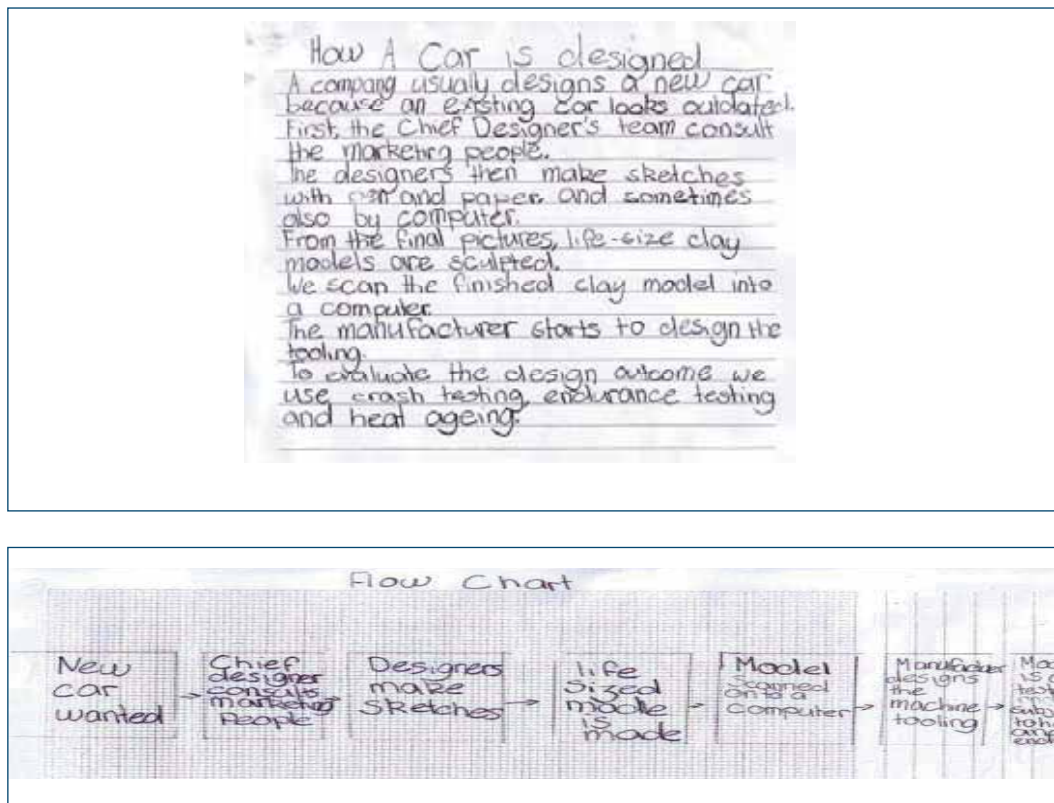 How A Car is designed
A company usually designs a new car
because an existing car looks outdated.
First, the Chief Designer's team consult
the marketing people.
The designers then make sketches
with pen and paper and sometimes
also by computer.
From the final pictures, life-size clay
models are sculpted.
We scan the finished clay model into
a computer.
The manufacturer starts to design the
tooling.
To evaluate the design outcome we
use crash testing, endurance testing
and heat ageing.
Flow Chart
New
car
wanted
Chief
designer
consults
marketing
People
Designers
make
Sketches
life
sized
modle
is
made
Model
Scanned
onto a
Computer
Manufacturer
designs
the
machine
tooling